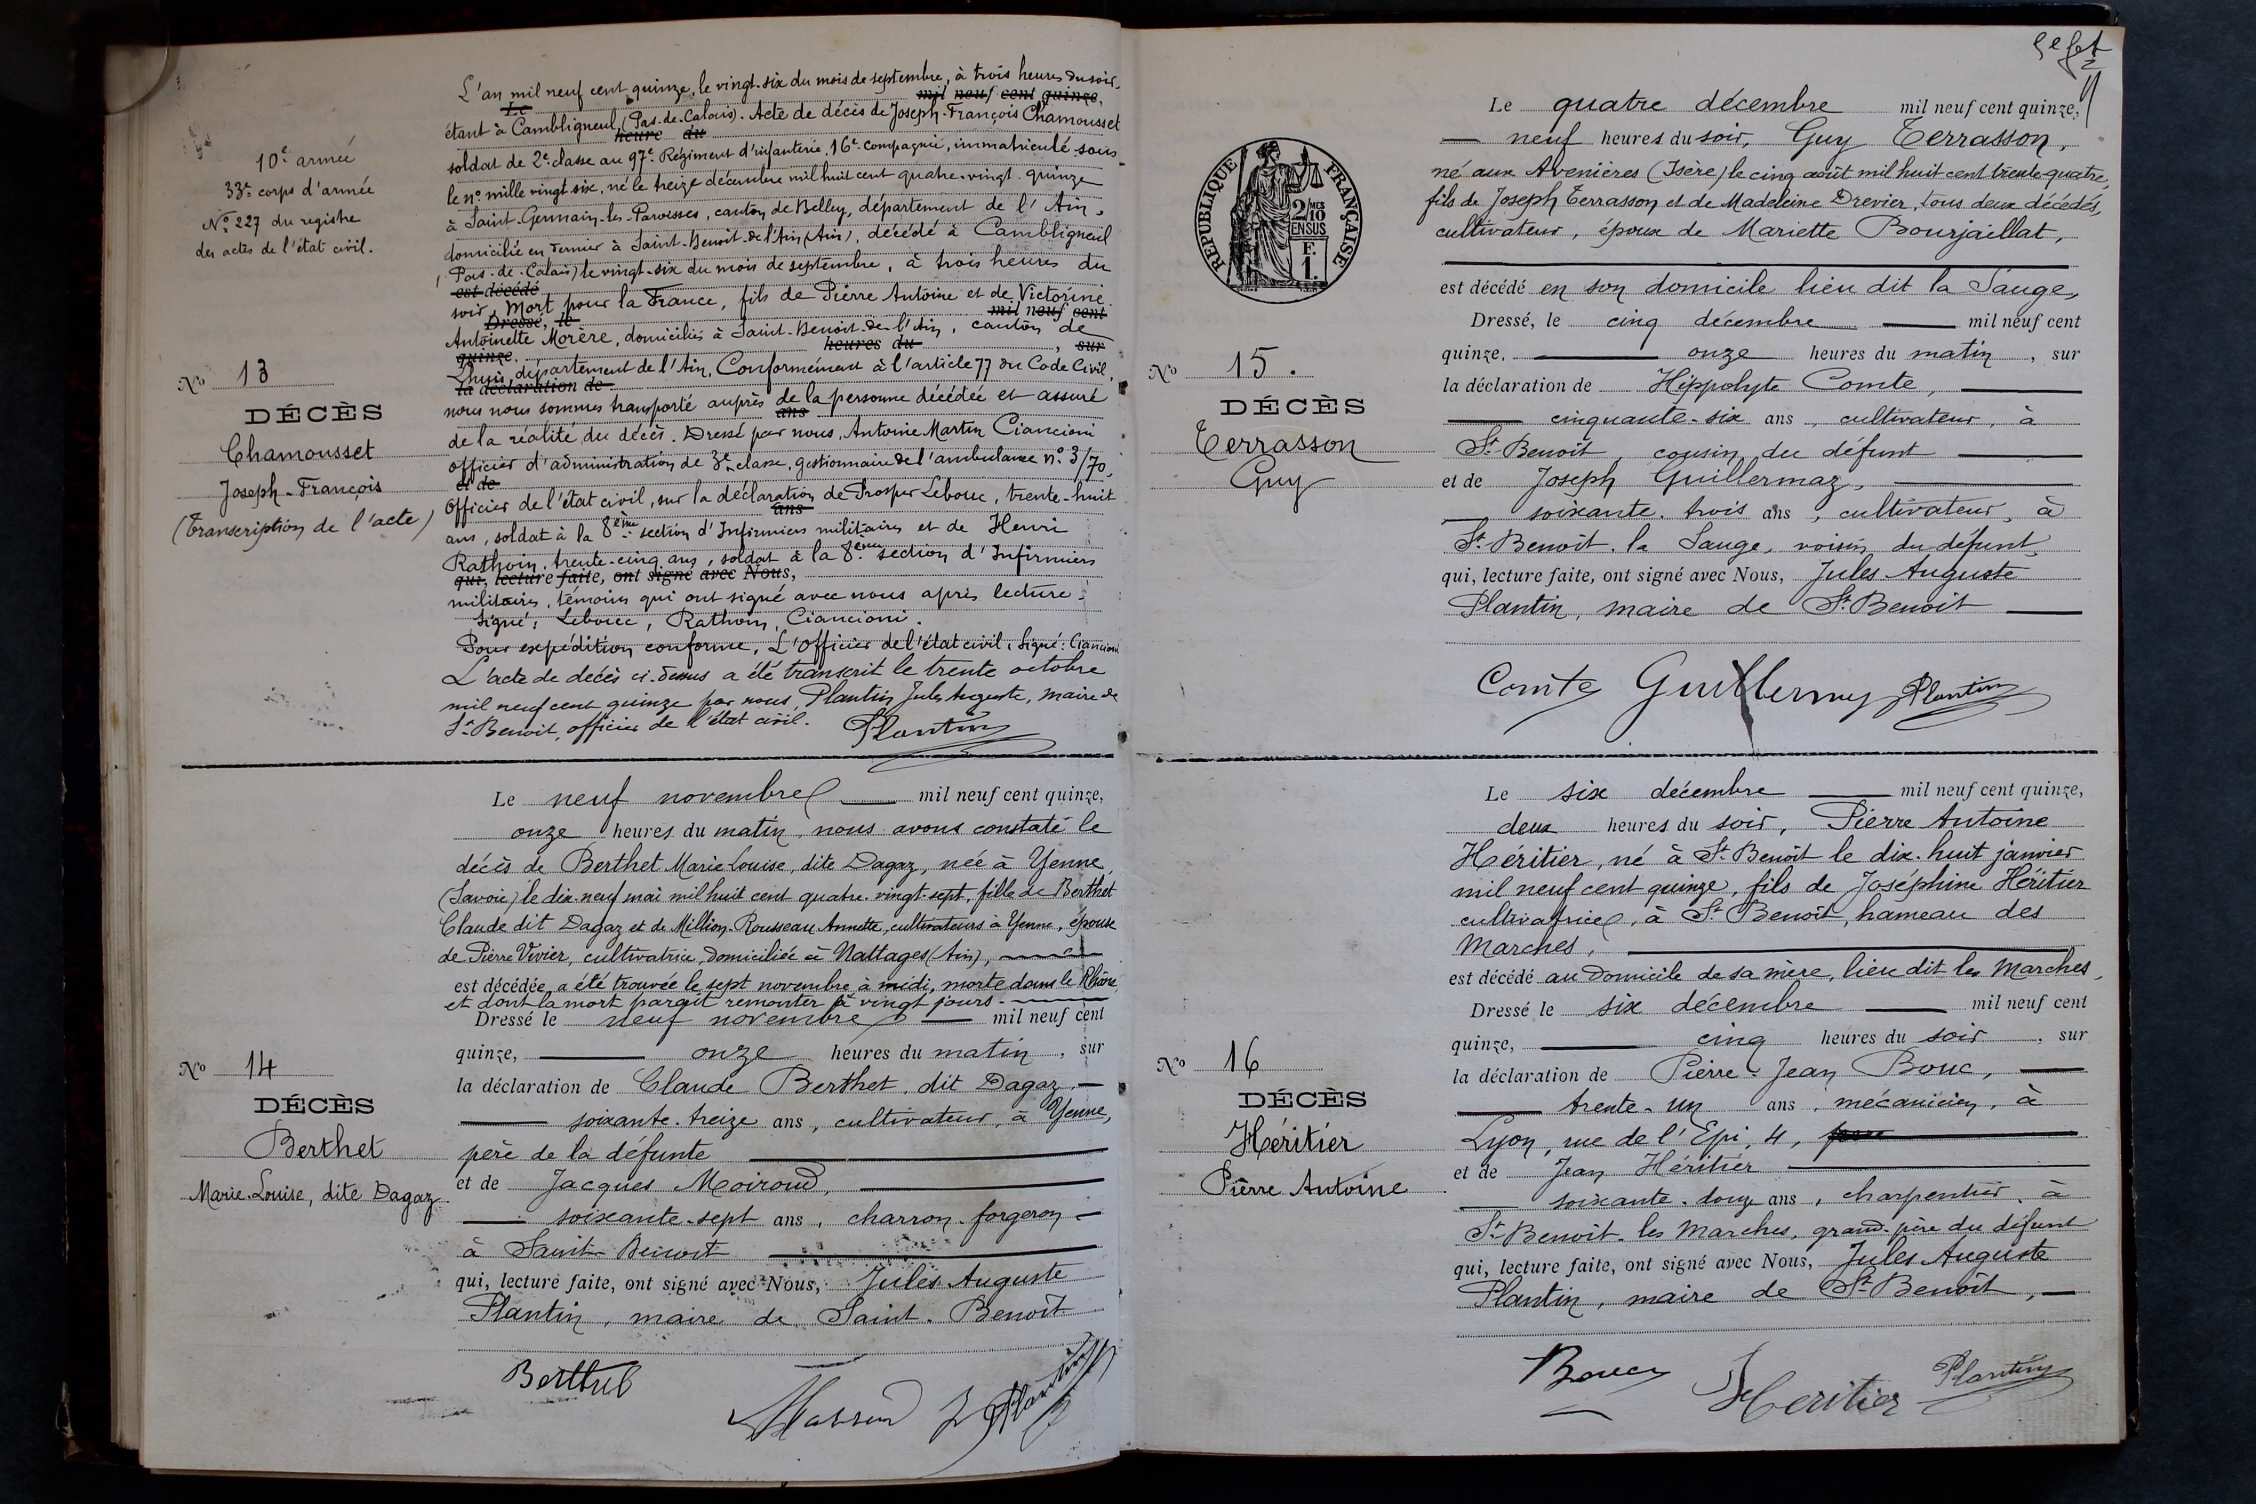 10e armée
33e corps d'armée
No 227 du registre
des actes de l'état civil.
No 13
DÉCÈS
Chamousset
Joseph-François
(Transcription de l'acte)
L'an mil neuf cent quinze, le vingt-six du mois de septembre, à trois heures du soir,
Le mil neuf cent quinze,
étant à Cambligneul (Pas-de-Calais). Acte de décès de Joseph-François Chamousset
heure du
soldat de 2e classe au 97e Régiment d'infanterie, 16e compagnie, immatriculé sous
le no mille vingt six, né le treize décembre mil huit cent quatre-vingt-quinze
à Saint-Germain-les-Paroisses, canton de Belley, département de l'Ain,
domicilié en dernier à Saint-Benoit-de-l'Ain (Ain), décédé à Cambligneul
(Pas-de-Calais) le vingt-six du mois de septembre, à trois heures du
est décédé
soir, Mort pour la France, fils de Pierre Antoine et de Victorine
Dressé, le mil neuf cent
Antoinette Morère, domiciliés à Saint-Benoit-de-l'Ain, canton de
quinze, heures du , sur
Lhuis, département de l'Ain, Conformément à l'article 77 du Code Civil,
la déclaration de
nous nous sommes transporté auprès de la personne décédée et assuré
ans
de la réalité du décès. Dressé par nous, Antoine Martin Ciancioni
officier d'administration de 3e classe, gestionnaire de l'ambulance no 3/70,
et de
Officier de l'état civil, sur la déclaration de Prosper Lebouc, trente-huit
ans
ans, soldat à la 8ème section d'Infirmiers militaires et de Henri
Rathoin, trente-cinq ans, soldat à la 8ème section d'Infirmiers
qui, lecture faite, ont signé avec Nous,
militaires, témoins qui ont signé avec nous après lecture.
Signé: Lebouc, Rathoin, Ciancioni.
Pour expédition conforme, L'Officier de l'état civil, Signé: Ciancioni
L'acte de décès ci-dessus a été transcrit le trente octobre
mil neuf cent quinze par nous, Plantin Jules Auguste, maire de
St Benoit, officier de l'état civil. Plantin
No 14
DÉCÈS
Berthet
Marie-Louise, dite Dagaz
Le neuf novembre mil neuf cent quinze,
onze heures du matin, nous avons constaté le
décès de Berthet Marie Louise, dite Dagaz, née à Yenne
(Savoie) le dix-neuf mai mil huit cent quatre-vingt-sept, fille de Berthet
Claude dit Dagaz et de Million-Rousseau Annette, cultivateurs à Yenne, épouse
de Pierre Vivier, cultivatrice, domiciliée à Nattages (Ain),
est décédée, a été trouvée le sept novembre à midi, morte dans le Rhône
et dont la mort parait remonter à vingt jours.
Dressé le neuf novembre mil neuf cent
quinze, onze heures du matin, sur
la déclaration de Claude Berthet, dit Dagaz,
soixante-treize ans, cultivateur, à Yenne,
père de la défunte
et de Jacques Moiroud,
soixante-sept ans, charron-forgeron
à Saint-Benoit
qui, lecture faite, ont signé avec Nous, Jules Auguste
Plantin, maire de Saint-Benoit
Plantin
5e fet
No 15.
DÉCÈS
Terrasson
Guy
RÉPUBLIQUE FRANÇAISE
2/10 MES
EN SUS
F.
1.
Le quatre décembre mil neuf cent quinze,
neuf heures du soir, Guy Terrasson,
né aux Avenières (Isère) le cinq août mil huit cent trente-quatre,
fils de Joseph Terrasson et de Madeleine Drevier, tous deux décédés,
cultivateur, époux de Mariette Bourjaillat,
est décédé en son domicile lieu dit la Sauge,
Dressé, le cinq décembre mil neuf cent
quinze, onze heures du matin, sur
la déclaration de Hippolyte Comte,
cinquante-six ans, cultivateur, à
St Benoit, cousin du défunt
et de Joseph Guillermaz,
soixante-trois ans, cultivateur, à
St Benoit, la Sauge, voisin du défunt,
qui, lecture faite, ont signé avec Nous, Jules Auguste
Plantin, maire de St Benoit
Comte Plantin
No 16
DÉCÈS
Héritier
Pierre Antoine
Le six décembre mil neuf cent quinze,
deux heures du soir, Pierre Antoine
Héritier, né à St Benoit le dix-huit janvier
mil neuf cent quinze, fils de Joséphine Héritier
cultivatrice, à St Benoit, hameau des
Marches,
est décédé au domicile de sa mère, lieu dit les Marches,
Dressé le six décembre mil neuf cent
quinze, cinq heures du soir, sur
la déclaration de Pierre-Jean Bouc,
trente-un ans, mécanicien, à
Lyon, rue de l'Epi, 4,
et de Jean Héritier
soixante-douze ans, charpentier, à
St Benoit-les Marches, grand-père du défunt
qui, lecture faite, ont signé avec Nous, Jules Auguste
Plantin, maire de St Benoit,
Heritier Plantin